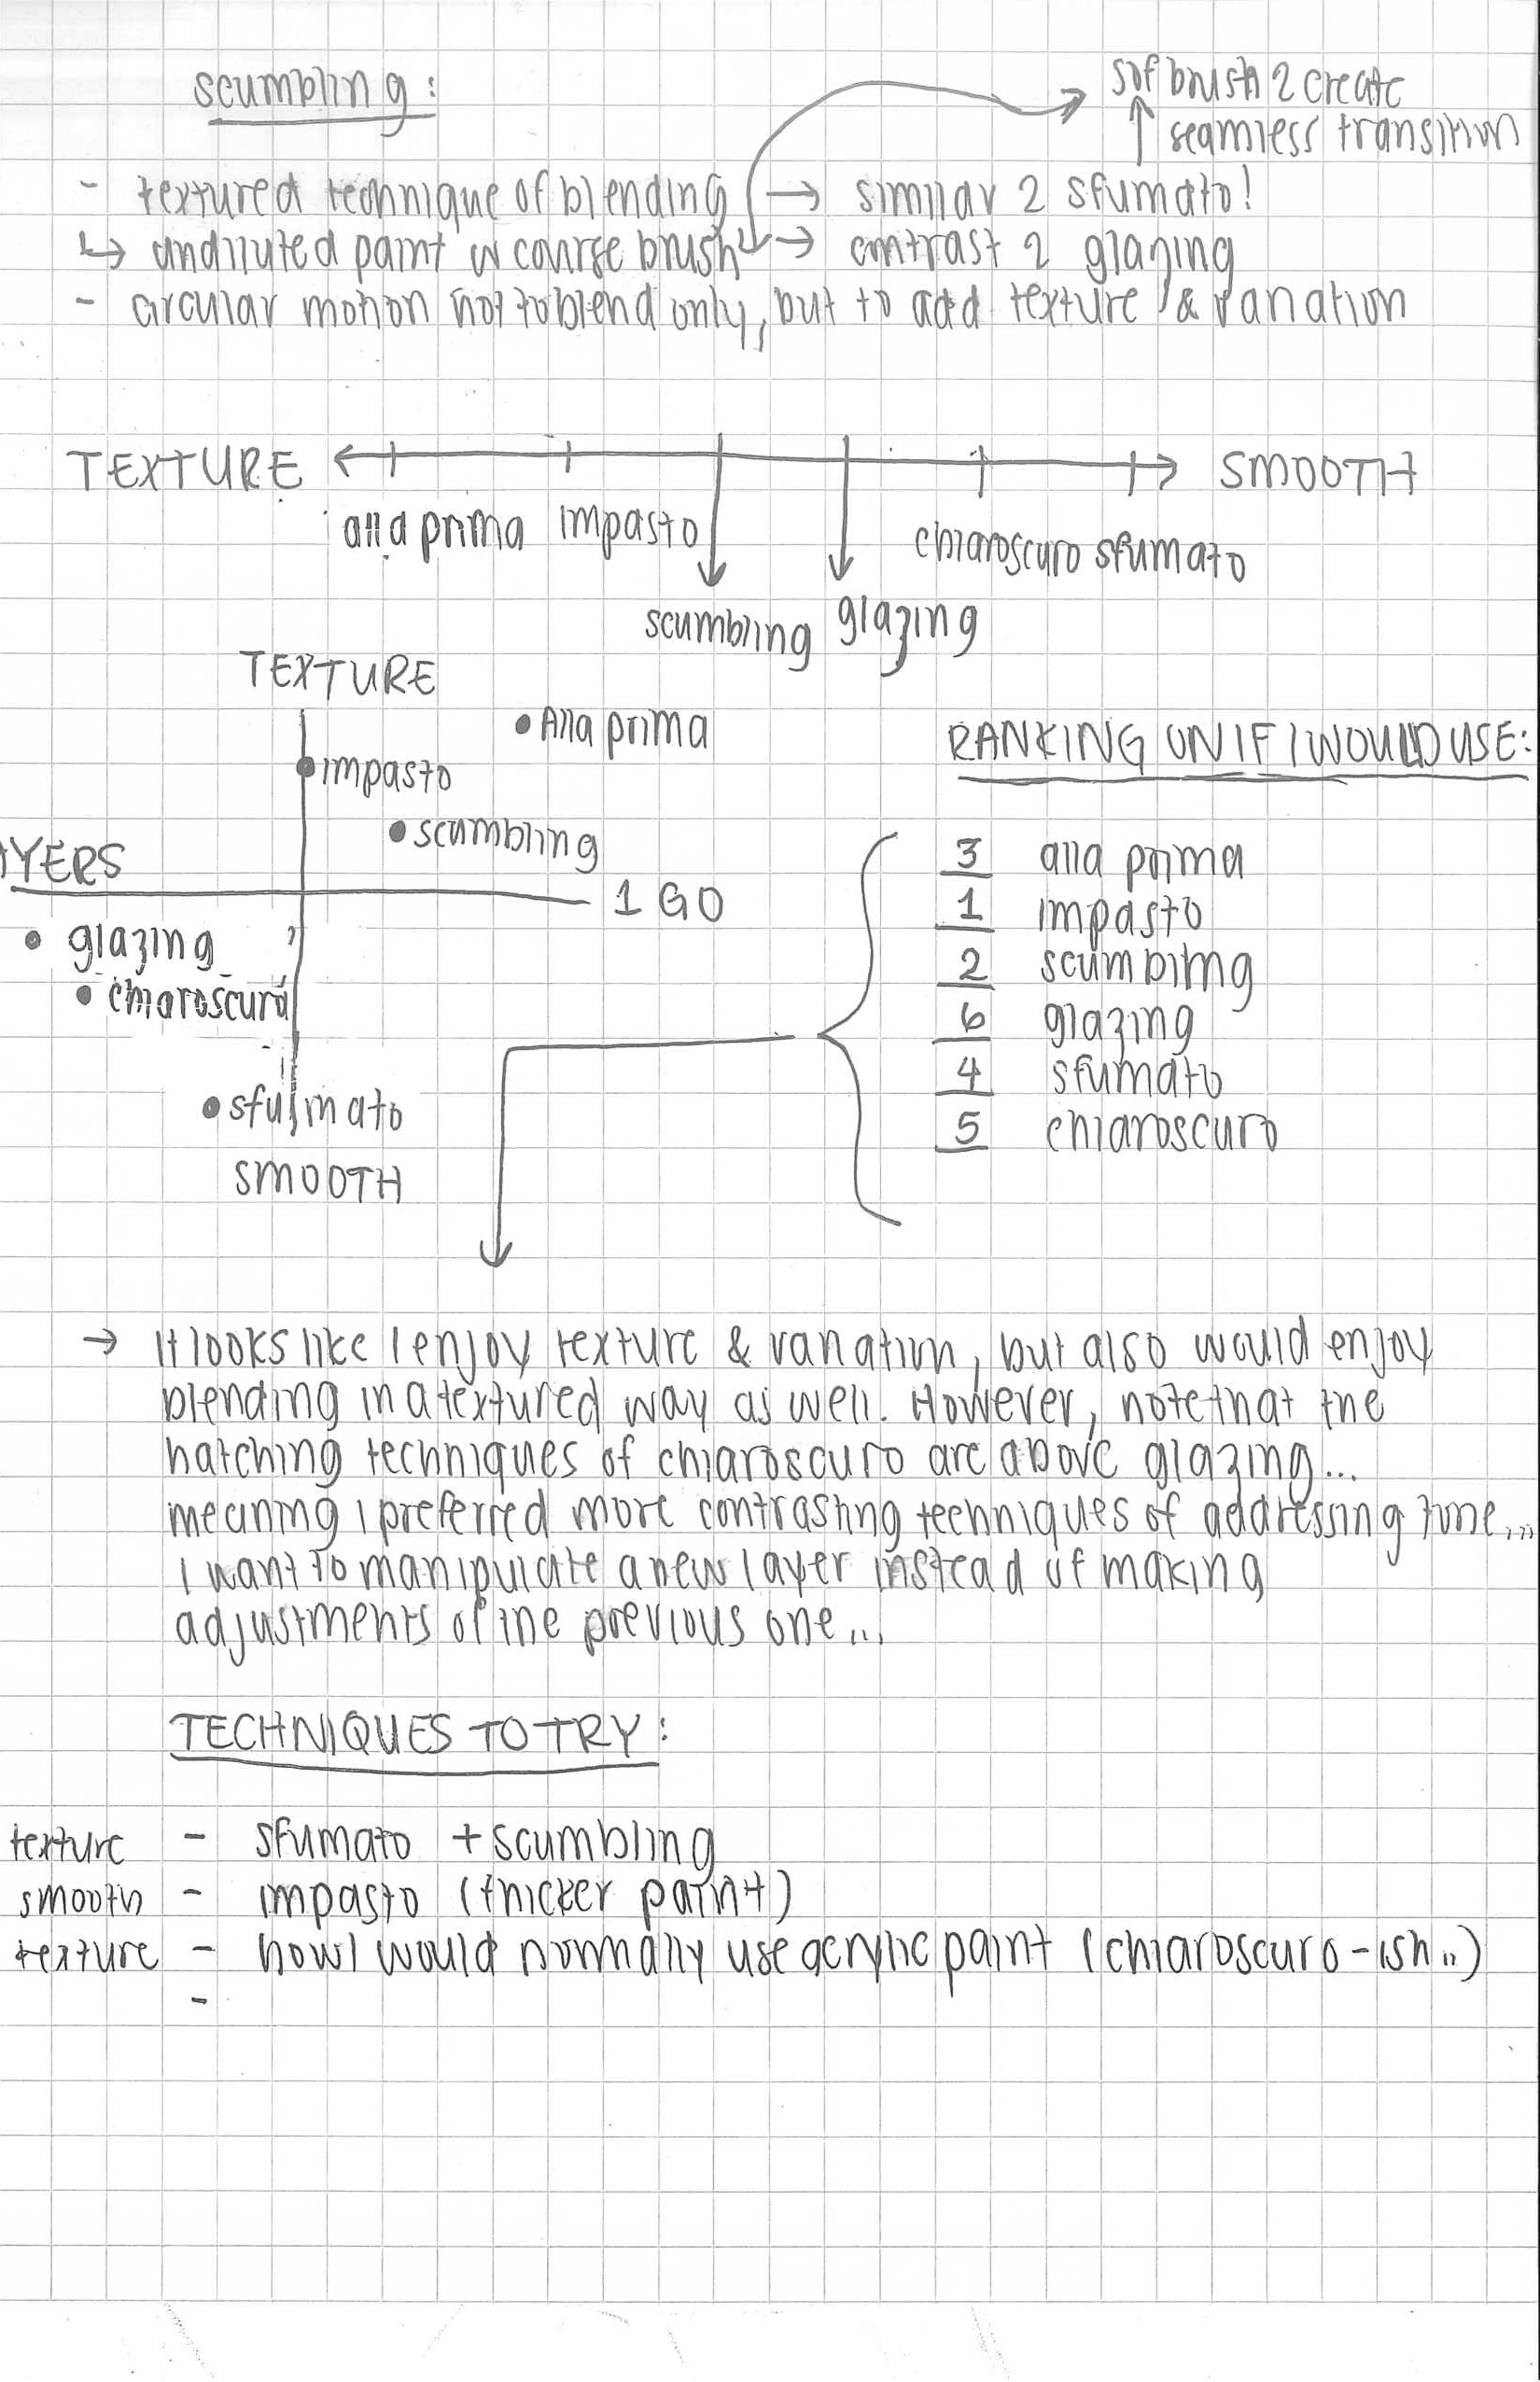 scumbling:
sof brush 2 create
↑ seamless transition
- textured technique of blending → similar 2 sfumato!
↳ undiluted paint w course brush → contrast 2 glazing
- circular motion not to blend only, but to add texture & variation
TEXTURE SMOOTH
alla prima impasto chiaroscuro sfumato
scumbling glazing
TEXTURE
• Alla prima
RANKING ON IF I WOULD USE:
• impasto
• scumbling
YERS
1 GO
• glazing
• chiaroscuro
• sfumato
SMOOTH
3 alla prima
1 impasto
2 scumbling
6 glazing
4 sfumato
5 chiaroscuro
→ It looks like I enjoy texture & variation, but also would enjoy
blending in a textured way as well. However, note that the
hatching techniques of chiaroscuro are above glazing...
meaning I preferred more contrasting techniques of addressing tone...
I want to manipulate a new layer instead of making
adjustments of the previous one...
TECHNIQUES TO TRY:
texture - sfumato + scumbling
smooth - impasto (thicker paint)
texture - how I would normally use acrylic paint (chiaroscuro-ish..)
-